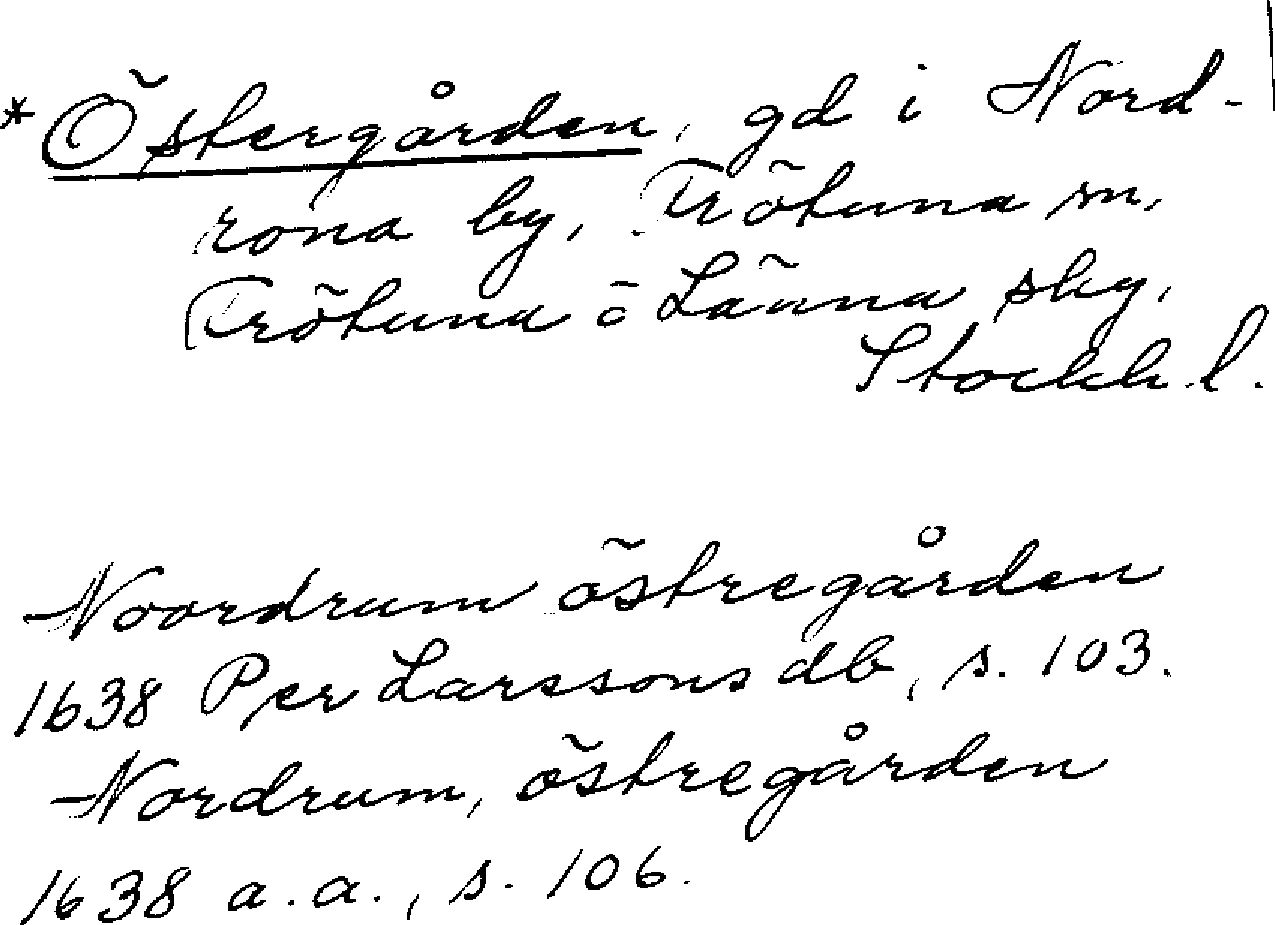 *Östergården, gd i Nord-
rona by, Frötuna sn,
Frötuna o Länna skg,
Stockh. l.
Noordrum östregården
1638 Per Larssons db, s. 103.
Nordrum, östregården
1638 a.a., s. 106.